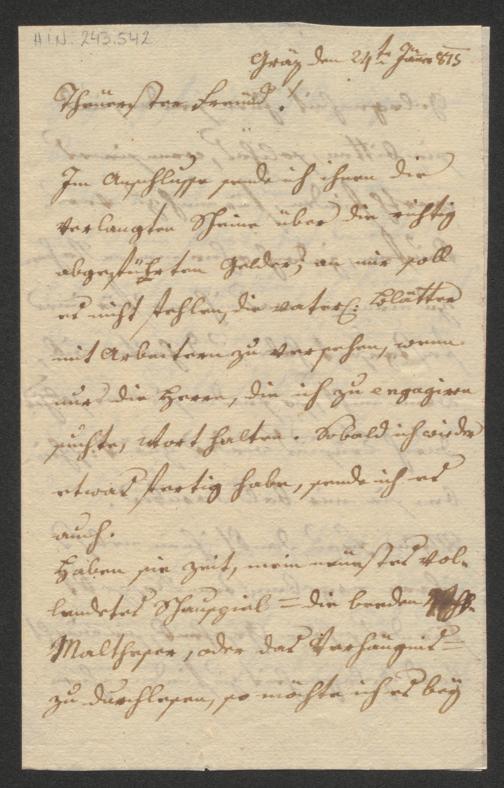 H.I.N. 243.542
Gräz den 24t Jänner 815
Theuerster Freund!
Im Anschlusse sende ich ihnen die
verlangten Scheine über die richtig
abgeführten Gelder; an mir soll
es nicht fehlen, die vaterl: Blätter
mit Arbeiten zu versehen, wenn
nur die Herren, die ich zu engagiren
suchte, Wort halten. Sobald ich wieder
etwas fertig habe, sende ich es
auch.
Haben sie Zeit, mein neuestes vol-
lendetes Schauspiel = die beeden
Maltheser, oder das Verhängnis =
zu durchlesen, so möchte ich es bey